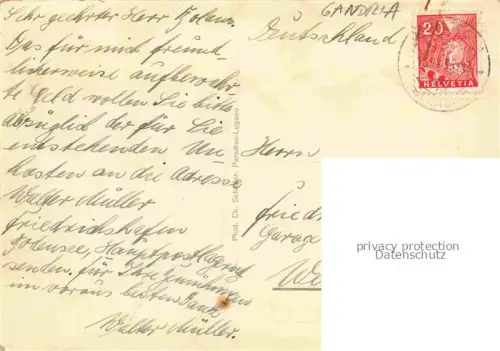 Sehr geehrter Herr Kolann.
Das für mich freund-
licherweise aufbewahr-
te Geld wollen Sie bitte
abzüglich der für Sie
entstehenden Un-
kosten an die Adresse
Walter Müller
Friedrichshafen
Bodensee, Hauptpostlagernd
senden, für Ihre Bemühungen
im voraus besten Dank
Walter Müller.
GANDRIA
Deutschland
20
HELVETIA
Phot. Ch. Paradiso-Lugano
Herrn
Fried
Garage
We
privacy protection
Datenschutz